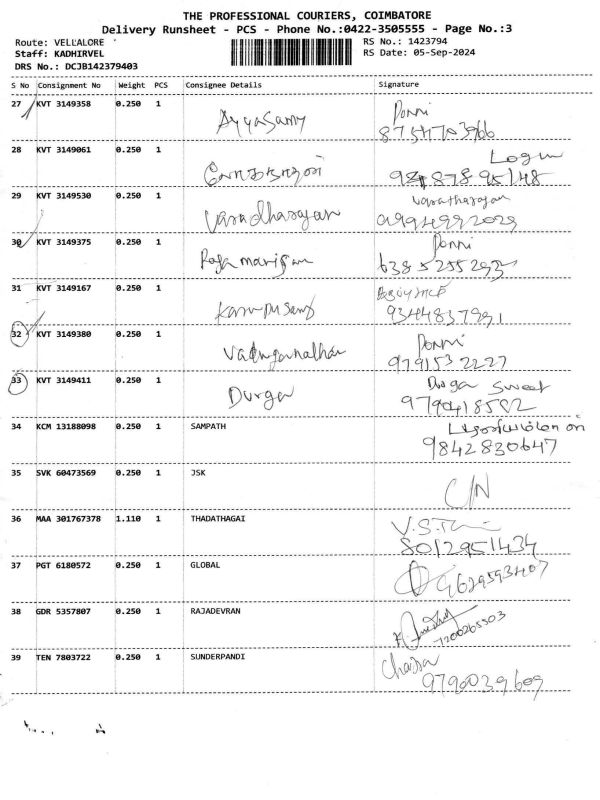 THE PROFESSIONAL COURIERS, COIMBATORE
Delivery Runsheet - PCS - Phone No.:0422-3505555 - Page No.:3
Route: VELLALORE RS No.: 1423794
Staff: KADHIRVEL RS Date: 05-Sep-2024
DRS No.: DCJB142379403
S No Consignment No Weight PCS Consignee Details Signature
27 KVT 3149358 0.250 1 Ayyasamy Ponni
28 KVT 3149061 0.250 1 Login
29 KVT 3149530 0.250 1 Varadharajan Varatharajan
30 KVT 3149375 0.250 1 Ponni
31 KVT 3149167 0.250 1
9344837991
32 KVT 3149380 0.250 1 Ponni
9791532227
33 KVT 3149411 0.250 1 Durga Durga Sweet
9790418582
34 KCM 13188098 0.250 1 SAMPATH
9842830647
35 SVK 60473569 0.250 1 JSK C/N
36 MAA 301767378 1.110 1 THADATHAGAI
8012951434
37 PGT 6180572 0.250 1 GLOBAL
9629593407
38 GDR 5357807 0.250 1 RAJADEVRAN
7200265503
39 TEN 7803722 0.250 1 SUNDERPANDI
9790039609